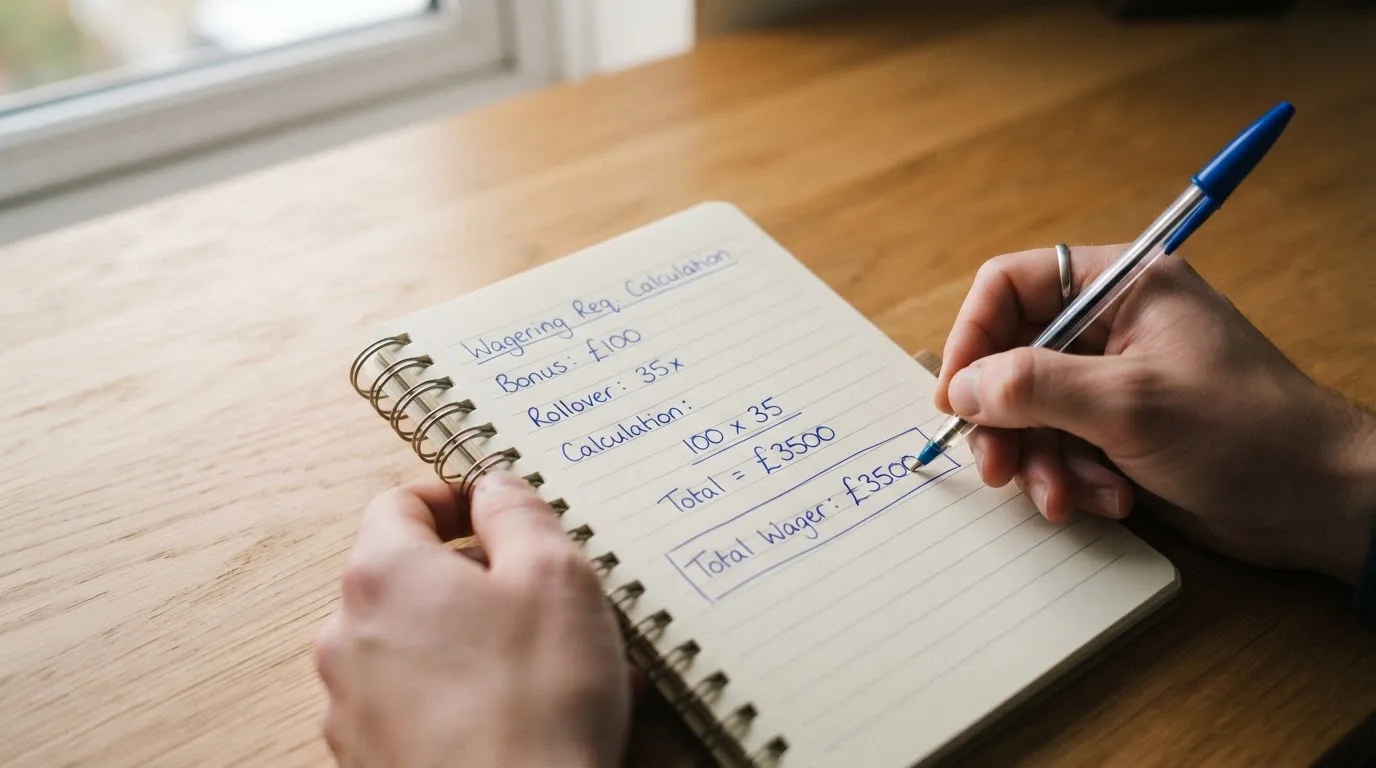 Wagering Req Calculation
Bonus: £100
Rollover: 35x
Calculation:
100 x 35
Total = £3500
Total Wager: £3500